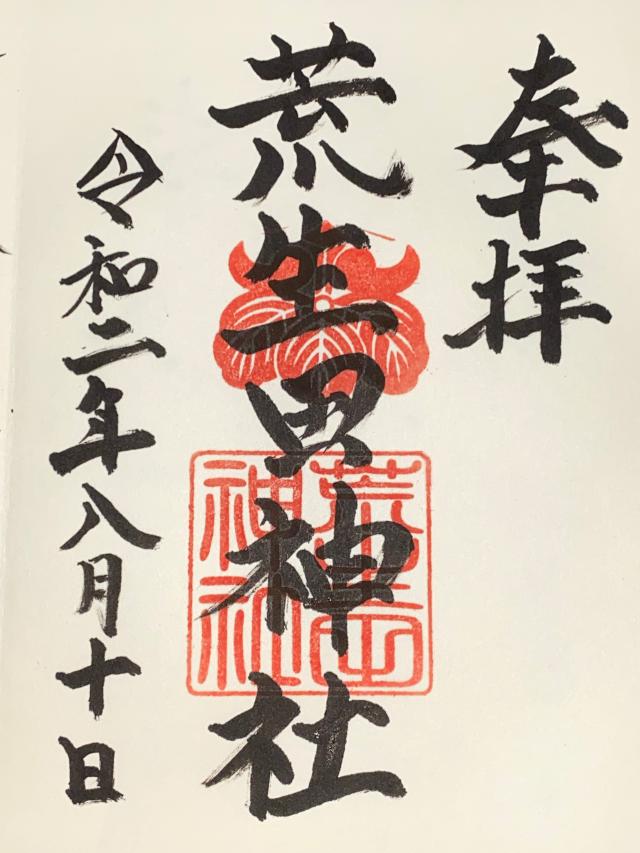 奉拝
荒生田神社
荒生田
神社
令和二年八月十日